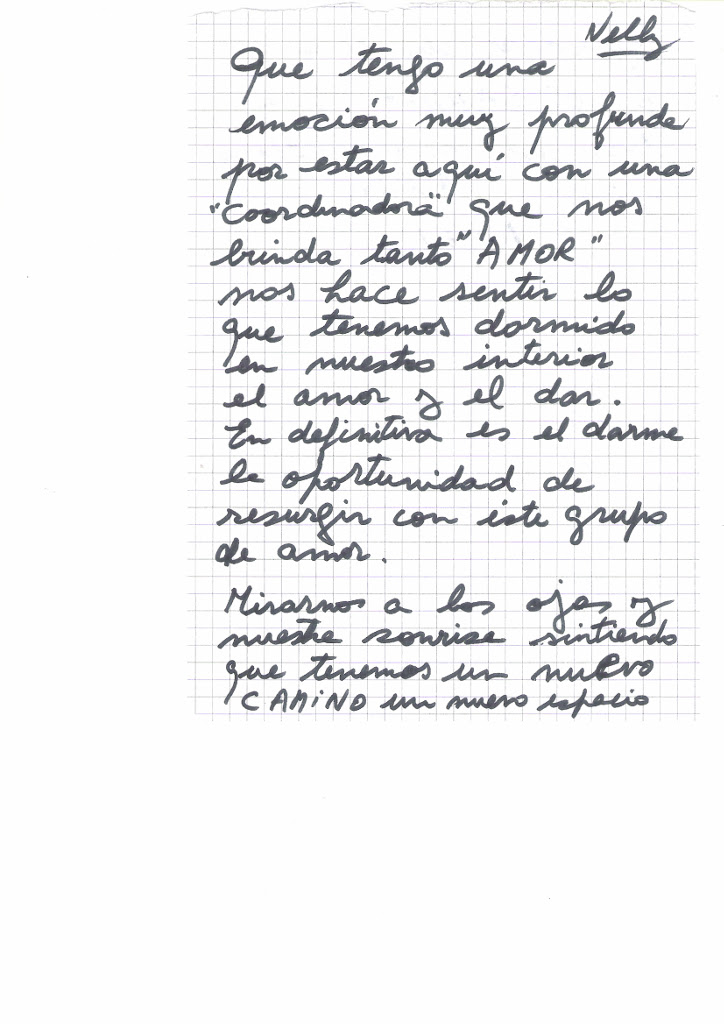 Nelly
Que tengo una
emoción muy profunda
por estar aquí con una
"coordinadora" que nos
brinda tanto "AMOR"
nos hace sentir lo
que tenemos dormido
en nuestro interior
el amor y el dar.
En definitiva es el darme
la oportunidad de
resurgir con éste grupo
de amor.
Mirarnos a los ojos y
nuestra sonrisa sintiendo
que tenemos un nuevo
CAMINO un nuevo espacio